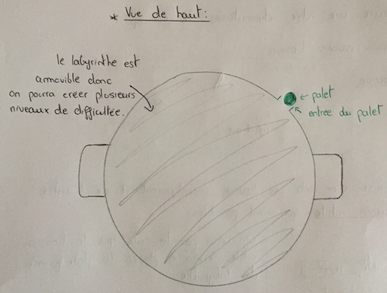 * Vue de haut:
le labyrinthe est
amovible donc
on pourra créer plusieurs
niveaux de difficultée.
← palet
entrée du palet